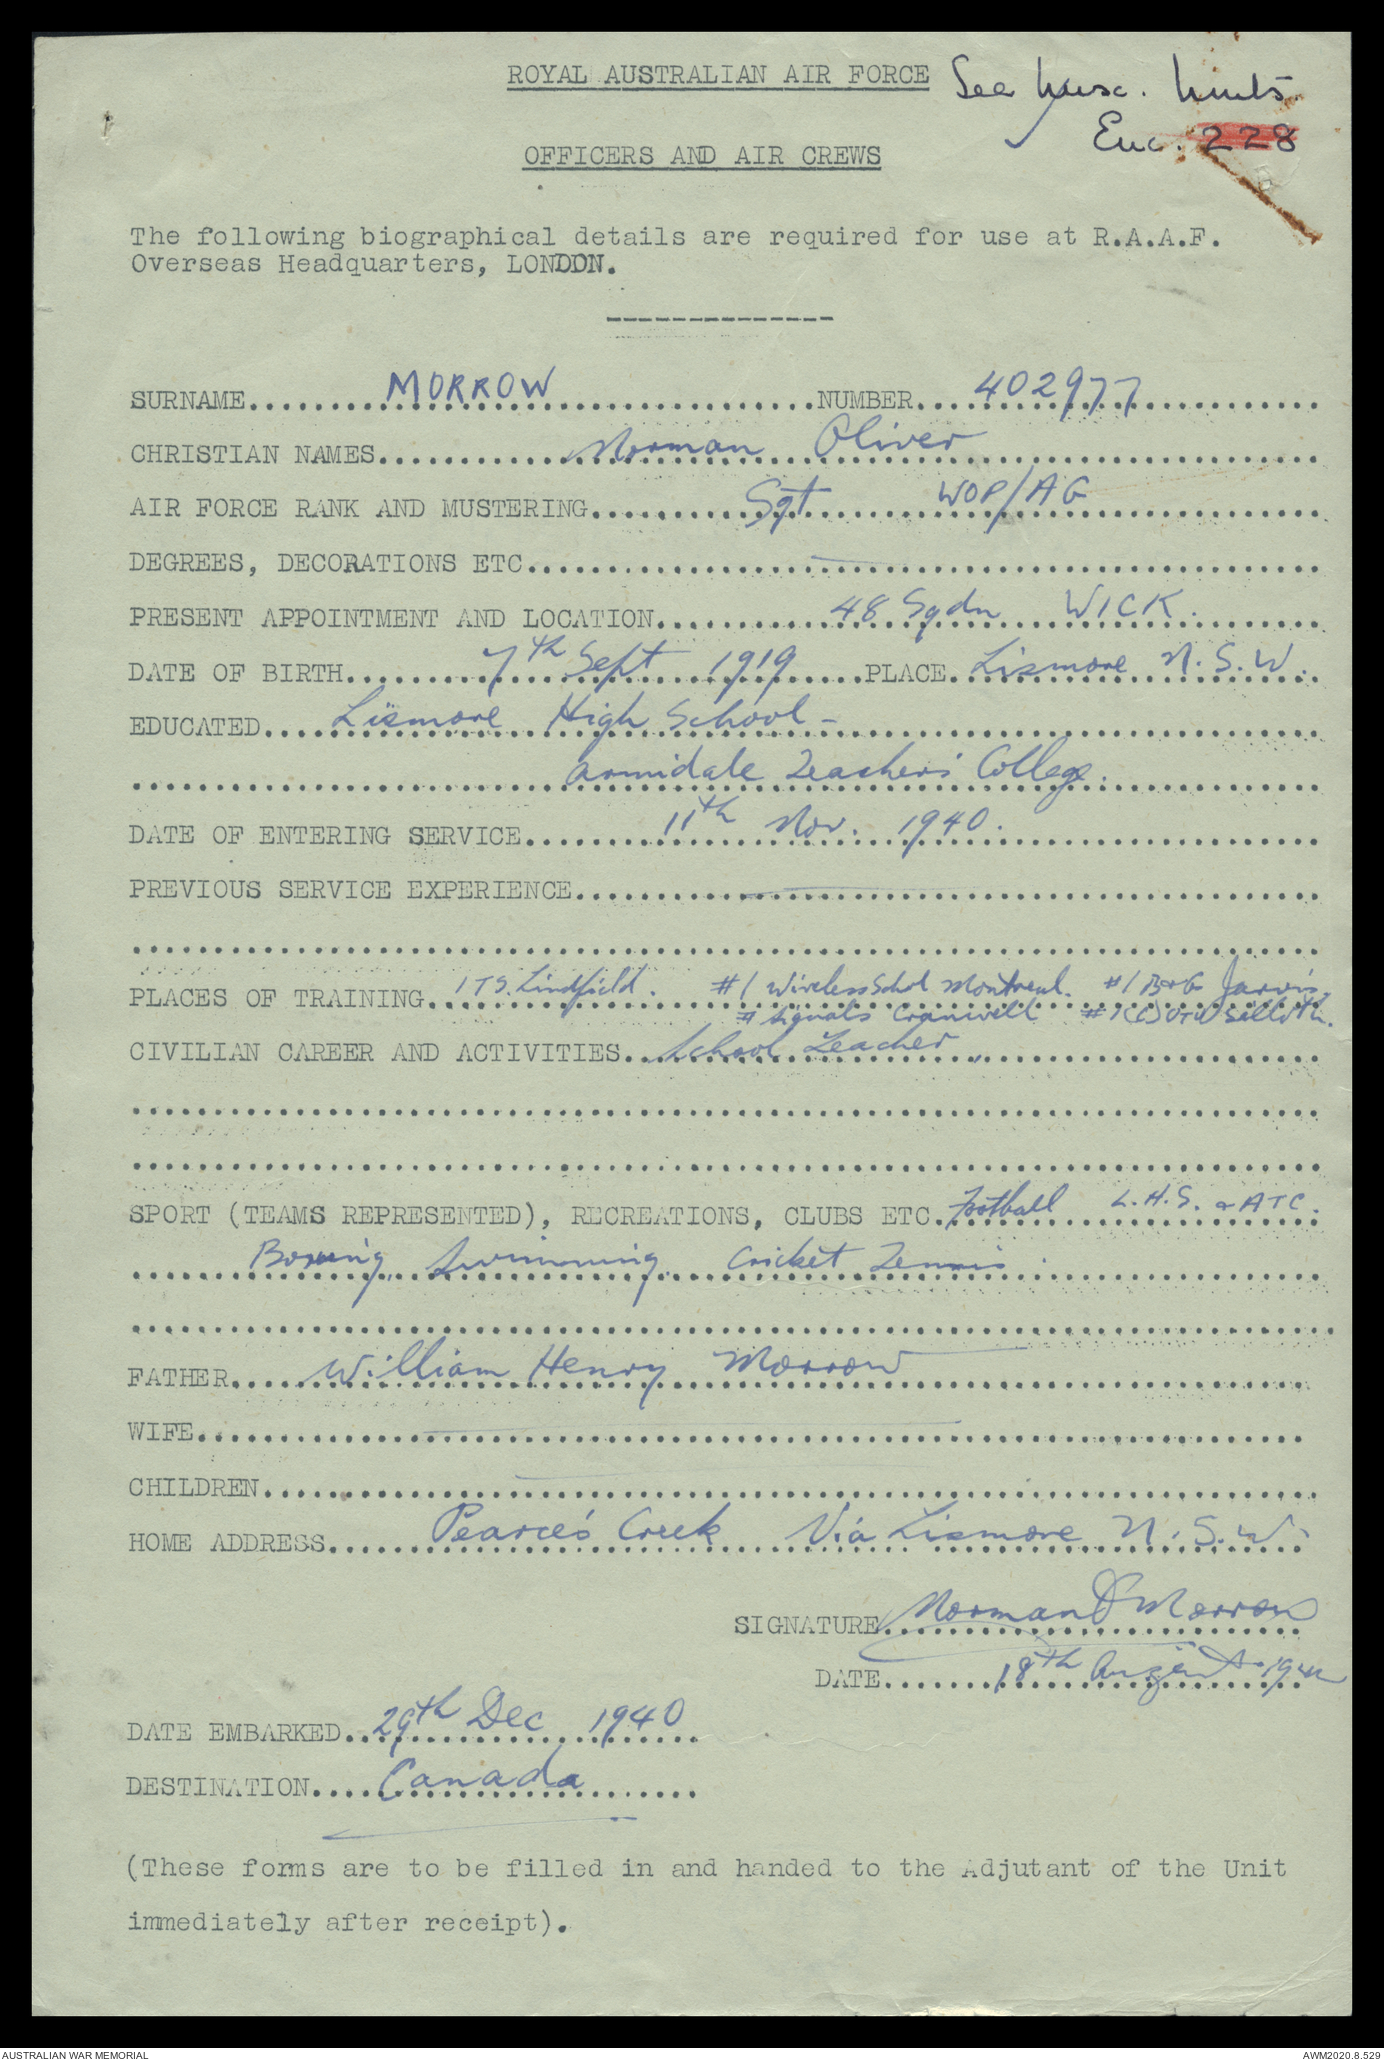 ROYAL AUSTRALIAN AIR FORCE
See Misc. Units
Enc. 228
OFFICERS AND AIR CREWS
The following biographical details are required for use at R.A.A.F.
Overseas Headquarters, LONDON.
--------------
SURNAME....MORROW....NUMBER....402977....
CHRISTIAN NAMES....Norman Oliver....
AIR FORCE RANK AND MUSTERING....Sgt WOP/AG....
DEGREES, DECORATIONS ETC....—....
PRESENT APPOINTMENT AND LOCATION....48 Sqdn WICK.
DATE OF BIRTH....7th Sept 1919....PLACE..Lismore N.S.W.
EDUCATED....Lismore High School -
Armidale Teachers' College.
DATE OF ENTERING SERVICE....11th Nov. 1940.
PREVIOUS SERVICE EXPERIENCE....—....
PLACES OF TRAINING..1 ITS. Lindfield. #1 Wireless School Montreal. #1 B&G Jarvis.
# Signals Cranwell #1(C) OTU Silloth.
CIVILIAN CAREER AND ACTIVITIES..School Teacher.
SPORT (TEAMS REPRESENTED), RECREATIONS, CLUBS ETC.Football L.H.S. & ATC.
Boxing, Swimming. Cricket Tennis.
FATHER....William Henry Morrow
WIFE....—....
CHILDREN....—....
HOME ADDRESS....Pearce's Creek Via Lismore N.S.W.
SIGNATURE Norman O Morrow
DATE....18th August 194
DATE EMBARKED..29th Dec 1940
DESTINATION....Canada
(These forms are to be filled in and handed to the Adjutant of the Unit
immediately after receipt).
AUSTRALIAN WAR MEMORIAL
AWM2020.8.529